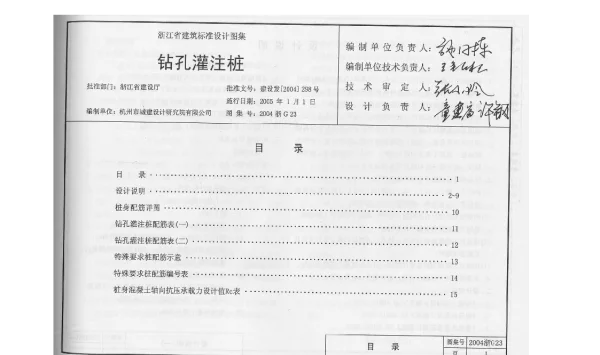 浙江省建筑标准设计图集
钻孔灌注桩
批准部门：浙江省建设厅
批准文号：建设发[2004]298号
施行日期：2005年1月1日
编制单位：杭州市城建设计研究院有限公司
图集号：2004浙G23
编制单位负责人：
编制单位技术负责人：
技术审定人：
设计负责人：
目录
目录 1
设计说明 2-9
桩身配筋详图 10
钻孔灌注桩配筋表(一) 11
钻孔灌注桩配筋表(二) 12
特殊要求桩配筋示意 13
特殊要求桩配筋编号表 14
桩身混凝土轴向抗压承载力设计值Rc表 15
目录
图集号 2004浙G23
页 1